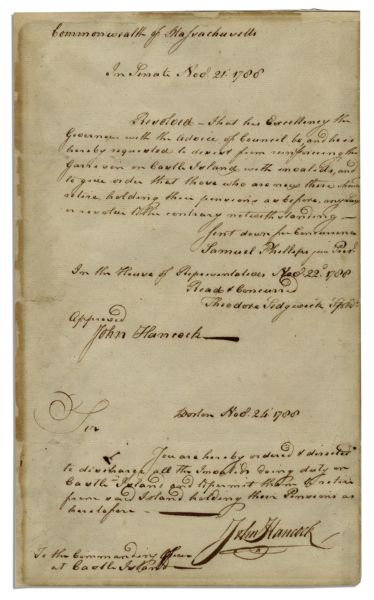 Commonwealth of Massachusetts
In Senate Nov. 21. 1788
Resolved - That his Excellency the
Governor with the advice of Council be, and he is
hereby requested to desist from reinforcing the
Garrison on Castle Island with invalids, and
to give order that those who are now there should
retire, holding their pensions as before, any law
or resolve to the contrary notwithstanding -
Sent down for Concurrence
Samuel Phillips jun Presdt
In the House of Representatives Nov 22d 1788
Read & Concurred
Theodore Sedgwick Spkr
Approved
John Hancock
Boston Nov. 24. 1788
Sir
You are hereby ordered & directed
to discharge all the Invalids doing duty on
Castle Island, and to permit them to retire
from said Island holding their Pensions as
heretofore -
John Hancock
To the Commanding Officer
at Castle Island